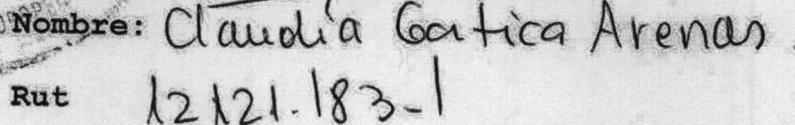 Nombre: Claudia Gatica Arenas
Rut 12121.183-1